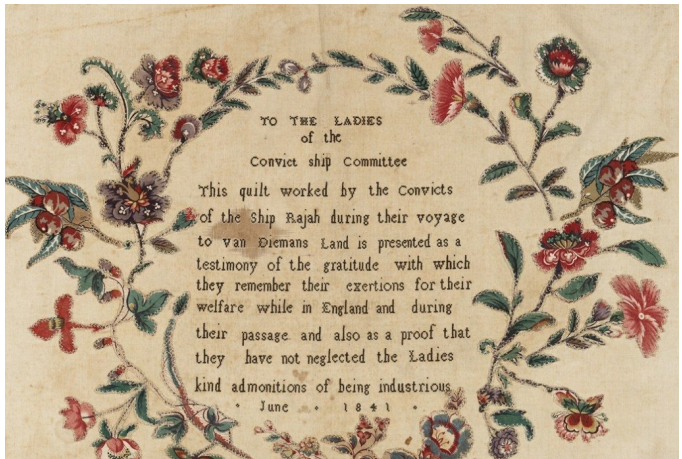 TO THE LADIES
of the
Convict ship Committee
This quilt worked by the Convicts
of the Ship Rajah during their voyage
to van Diemans Land is presented as a
testimony of the gratitude with which
they remember their exertions for their
welfare while in England and during
their passage and also as a proof that
they have not neglected the Ladies
kind admonitions of being industrious
· June · 1841 ·